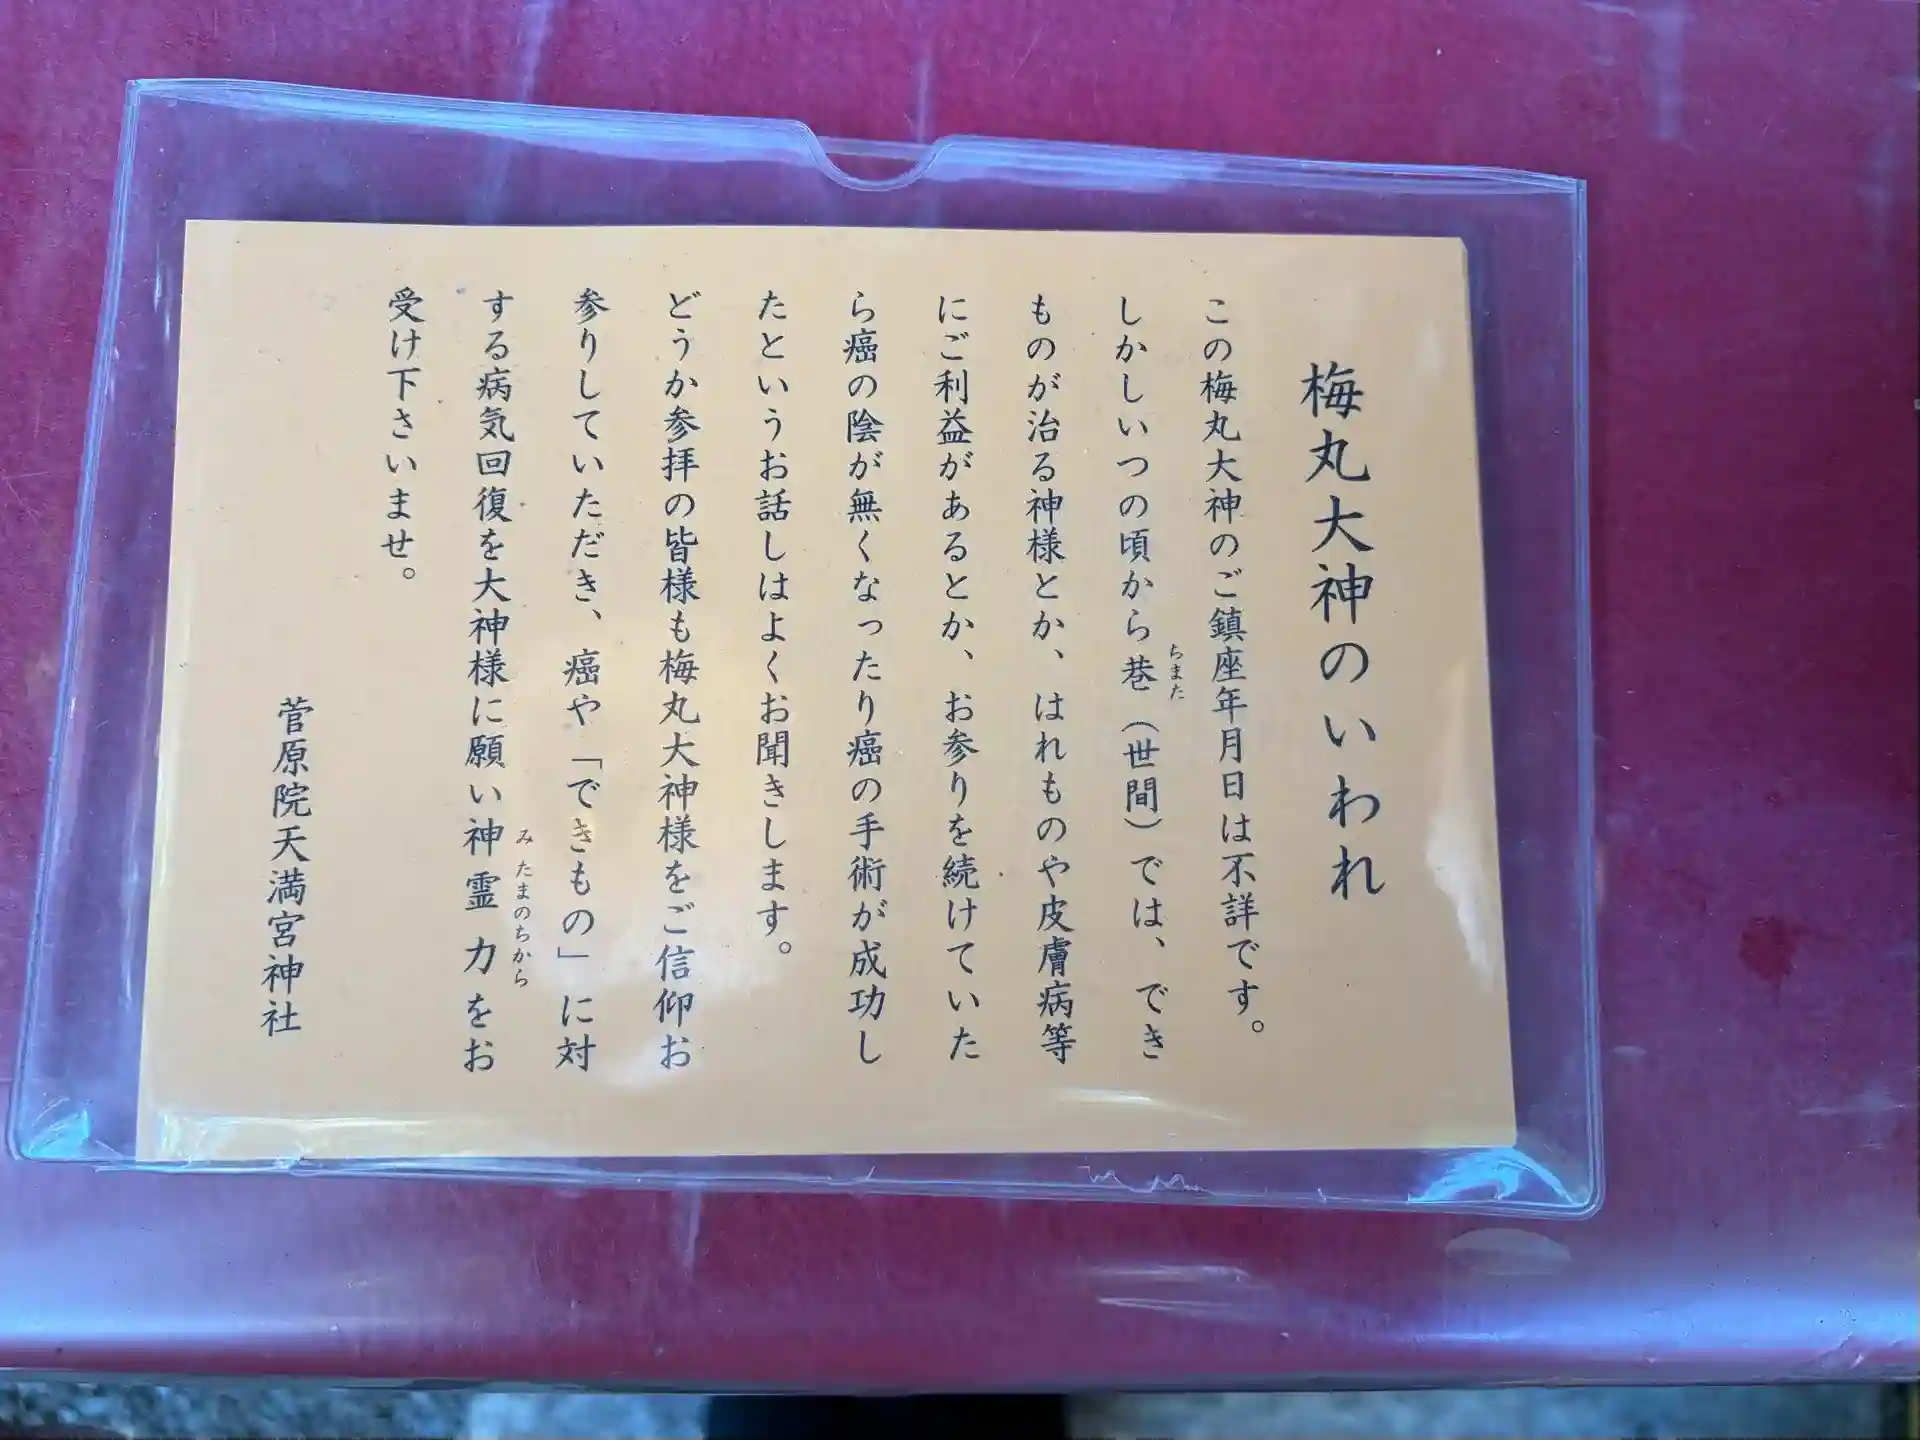 梅丸大神のいわれ
この梅丸大神のご鎮座年月日は不詳です。
しかしいつの頃から巷（世間）では、でき
ちまた
ものが治る神様とか、はれものや皮膚病等
にご利益があるとか、お参りを続けていた
ら癌の陰が無くなったり癌の手術が成功し
たというお話しはよくお聞きします。
どうか参拝の皆様も梅丸大神様をご信仰お
参りしていただき、癌や「できもの」に対
する病気回復を大神様に願い神霊力をお
みたまのちから
受け下さいませ。
菅原院天満宮神社